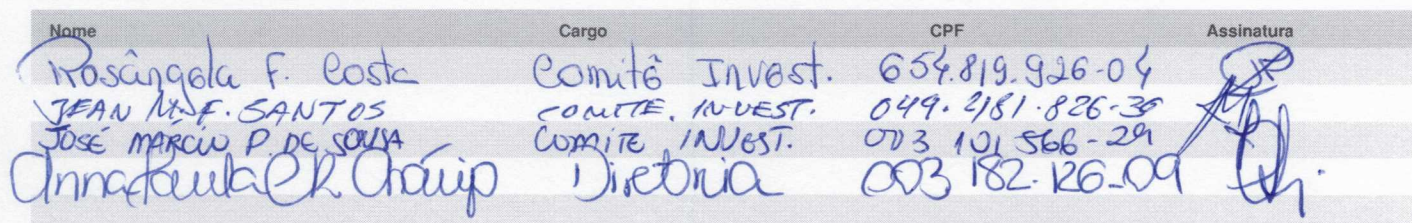 Nome Cargo CPF Assinatura
Rosângela F. Costa Comitê Invest. 654.819.926-04
JEAN M. F. SANTOS COMITE. INVEST.
JOSÉ MARCIO P. DE SOUSA COMITE INVEST. 003 101 566-29
Anna Paula Diretoria 003 182.126-09